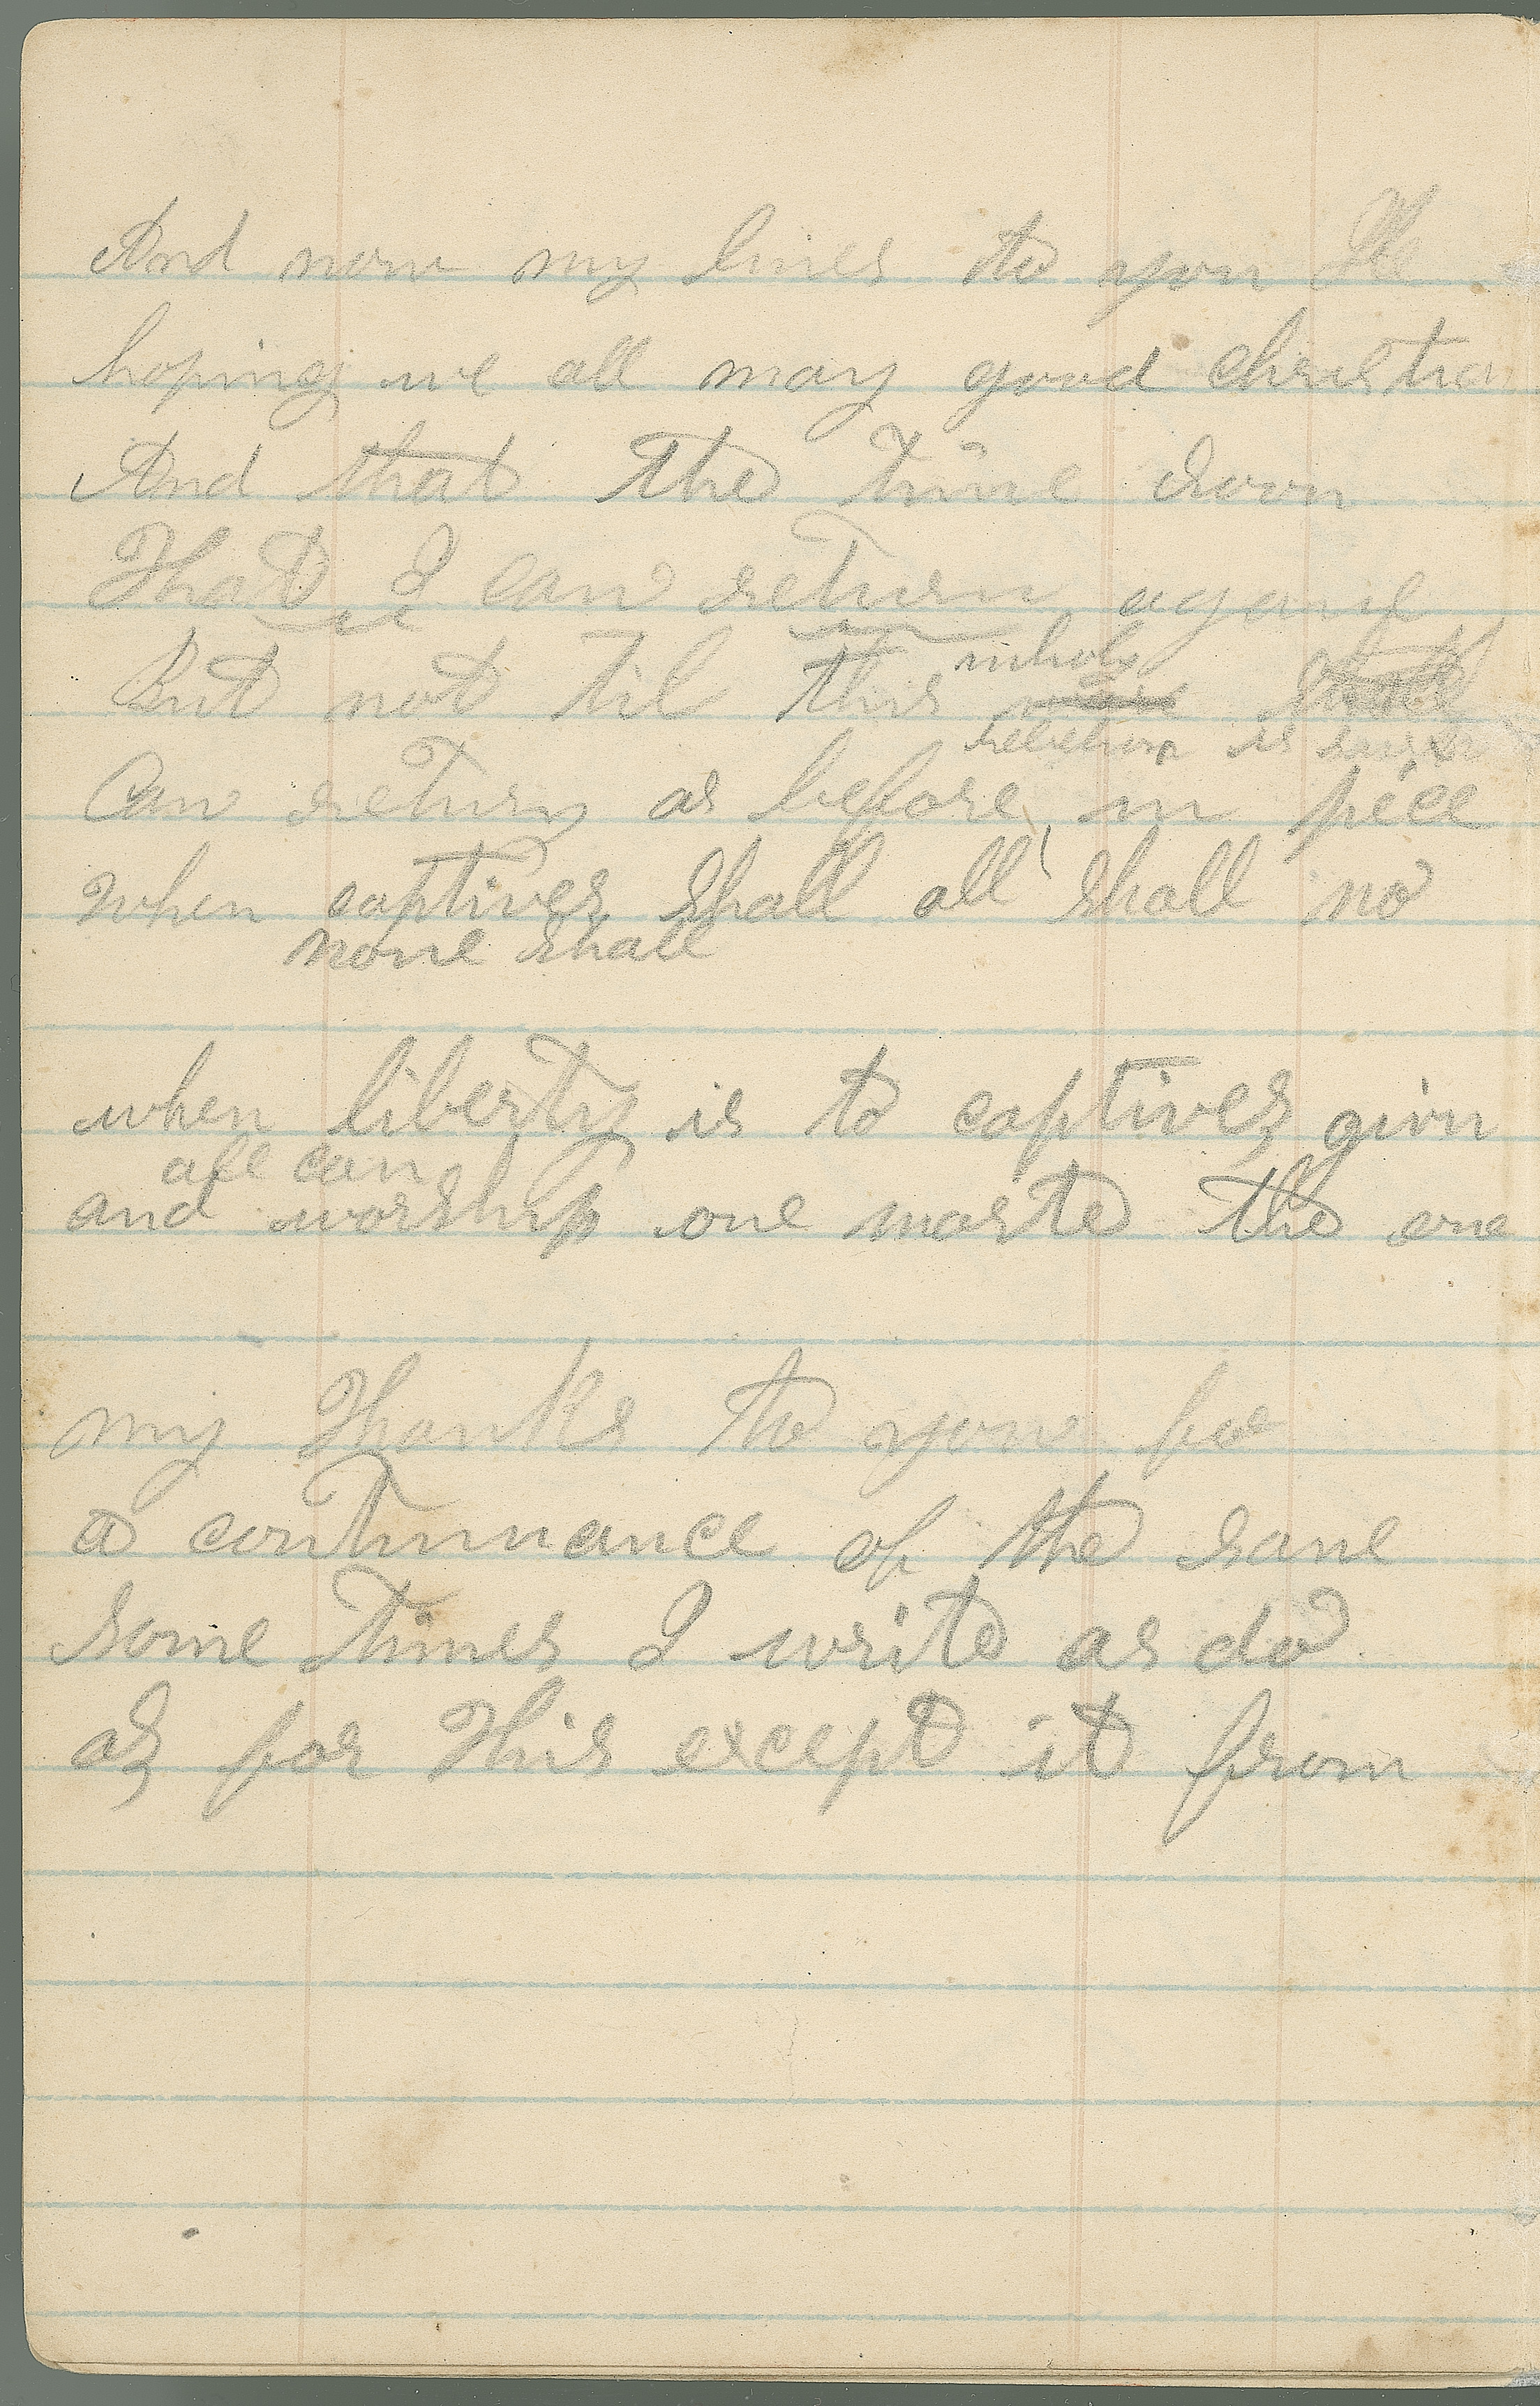 And now my lines to you
hoping we all may good christia
And that the time soon
That I can return againe
whole
But not til this
rebelion is
Can return as before in pece
when captives shall all shall no
none shall
when liberty is to captives givn
all can
and worship one maste the one
my Thanks to you for
a continuance of the same
some times I write as do
as for This except it from